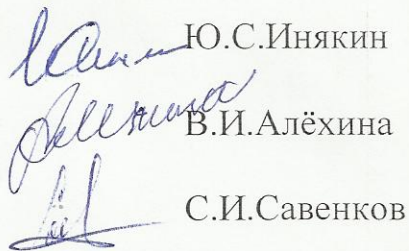 Ю.С.Инякин
В.И.Алёхина
С.И.Савенков